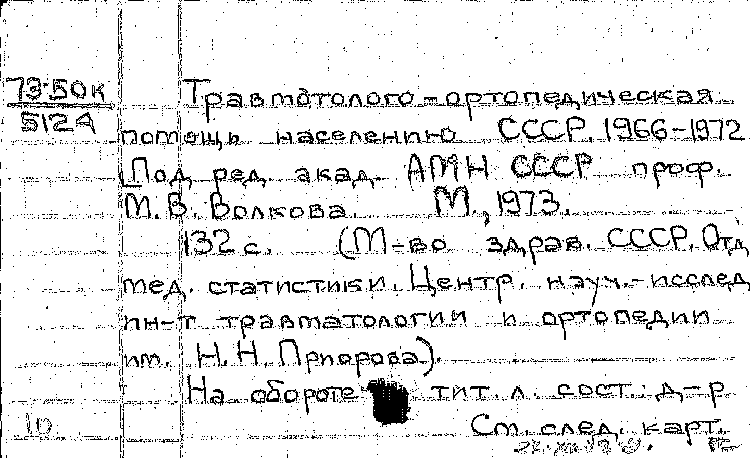 73-50к
5124
Травматолого-ортопедическая
помощь населению СССР. 1966-1972
[Под ред. акад. АМН СССР проф.
М. В. Волкова. М., 1973.
132 с. (М-во здрав. СССР. Отд
мед. статистики. Центр. науч.-исслед
ин-т травматологии и ортопедии
им. Н. Н. Приорова).
На обороте тит. л. сост. д-р
10
См. след. карт.